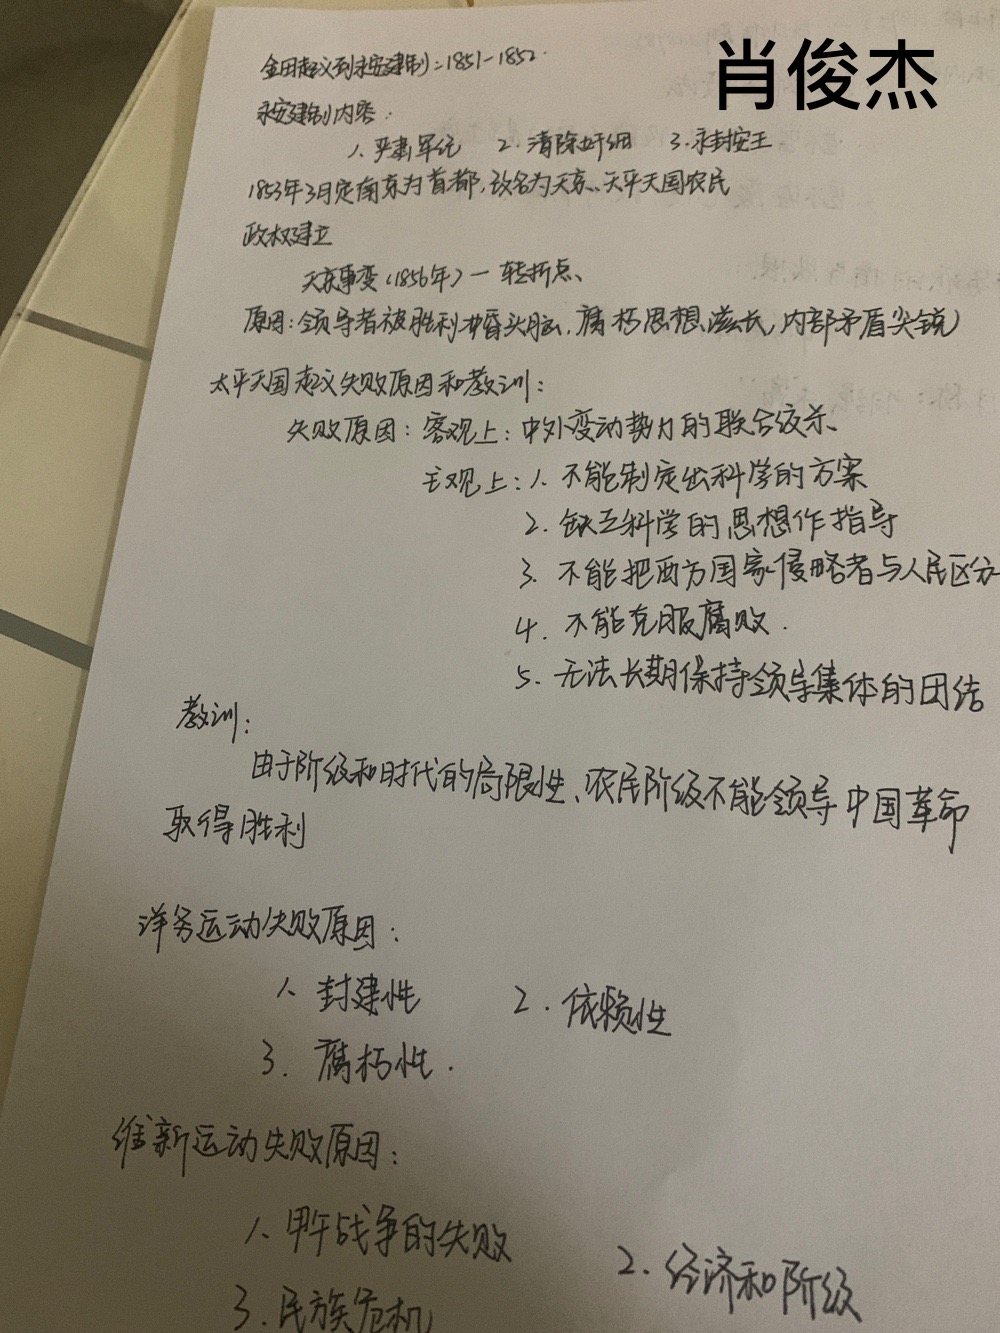 肖俊杰
金田起义到永安建制:1851-1852.
永安建制内容:
1. 严肃军纪 2. 清除奸细 3. 永封按王
1853年3月定南京为首都,改名为天京、天平天国农民
政权建立
天京事变(1856年)一转折点、
原因:领导者被胜利冲昏头脑,腐朽思想滋长,内部矛盾尖锐
太平天国起义失败原因和教训:
失败原因:客观上:中外变动势力的联合绞杀、
主观上:1. 不能制定出科学的方案
2. 缺乏科学的思想作指导
3. 不能把西方国家侵略者与人民区分
4. 不能克服腐败.
5. 无法长期保持领导集体的团结
教训:
由于阶级和时代的局限性、农民阶级不能领导中国革命
取得胜利
洋务运动失败原因:
1. 封建性 2. 依赖性
3. 腐朽性.
维新运动失败原因:
1. 甲午战争的失败 2. 经济和阶级
3. 民族危机